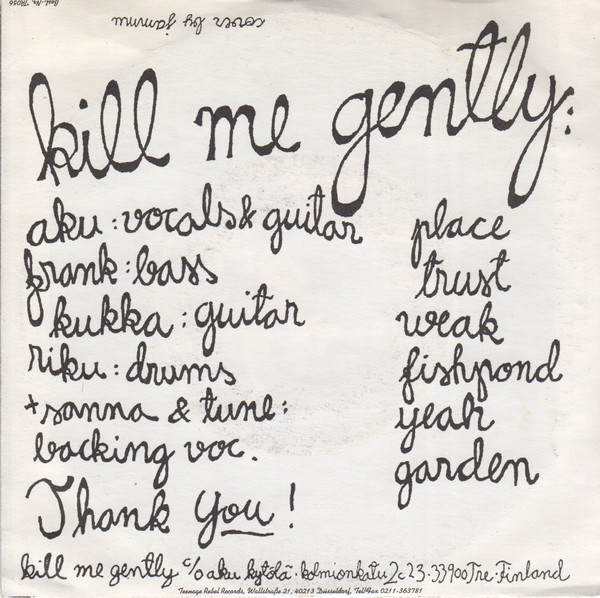 Best.-Nr. TR056
cover by jammu
kill me gently:
aku: vocals & guitar
frank: bass
kukka: guitar
riku: drums
+ sanna & tune:
backing voc.
Thank you!
place
trust
weak
fishpond
yeah
garden
kill me gently c/o aku kytölä · kolmionkatu 2c23 · 33900 Tre Finland
Teenage Rebel Records, Wallstraße 21, 40213 Düsseldorf, Tel/Fax 0211-363781